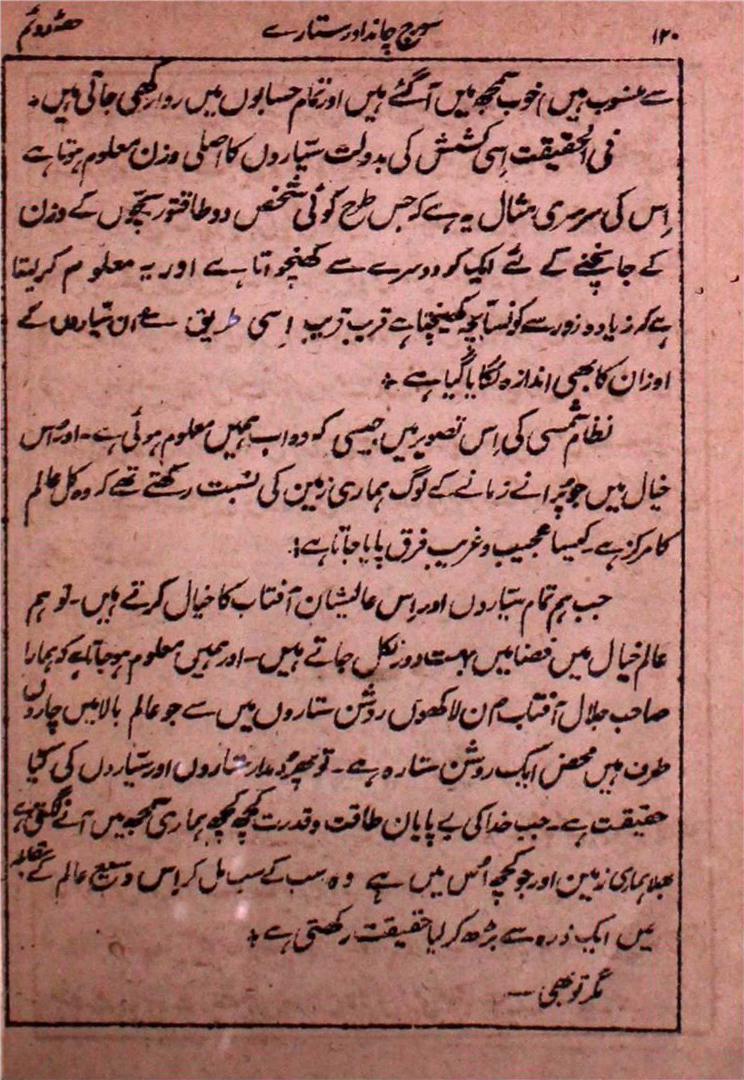 ۱۲۰ سورج چاند اور ستارے حصہ دوئم
سے منسوب ہیں) خوب سمجھ میں آ گئے ہیں اور تمام حسابوں میں روا رکھی جاتی ہیں ٭
فی الحقیقت اِسی کشش کی بدولت سیّاروں کا اصلی وزن معلوم ہوتا ہے
اِس کی سرسری مثال یہ ہے کہ جس طرح کوئی شخص دو طاقتور بچّوں کے وزن
کے جانچنے کے لئے ایک کو دوسرے سے کھنچواتا ہے اور یہ معلوم کر لیتا
ہے کہ زیادہ زور سے کونسا بچہ کھینچتا ہے قریب قریب اِسی طریق سے ان سیّاروں کے
اوزان کا بھی اندازہ لگایا گیا ہے ٭
نظام شمسی کی اِس تصویر میں جیسی کہ وہ اب ہمیں معلوم ہوئی ہے۔ اور اُس
خیال میں جو پُرانے زمانے کے لوگ ہماری زمین کی نسبت رکھتے تھے کہ وہ کل عالم
کا مرکز ہے۔ کیسا عجیب و غریب فرق پایا جاتا ہے!
جب ہم تمام سیّاروں اور اِس عالیشان آفتاب کا خیال کرتے ہیں۔ تو ہم
عالم خیال میں فضا میں بہت دور نکل جاتے ہیں۔ اور ہمیں معلوم ہو جاتا ہے کہ ہمارا
صاحب جلال آفتاب اُن لاکھوں روشن ستاروں میں سے جو عالم بالا میں چاروں
طرف ہیں محض ایک روشن ستارہ ہے۔ تو پھر دمدار ستاروں اور سیّاروں کی کیا
حقیقت ہے۔ جب خدا کی بے پایان طاقت و قدرت کچھ کچھ ہماری سمجھ میں آنے لگتی ہے
بھلا ہماری زمین اور جو کچھ اُس میں ہے وہ سب کے سب مل کر اِس وسیع عالم کے مقابلہ
میں ایک ذرہ سے بڑھ کر کیا حقیقت رکھتی ہے ٭
مگر تو بھی —